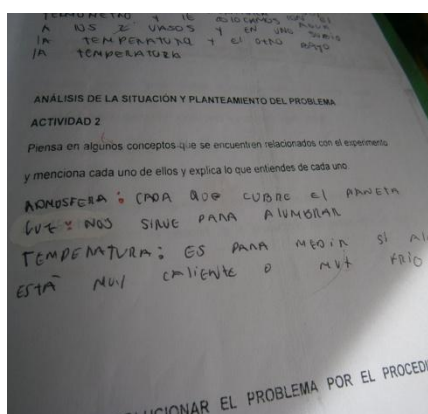 TERMOMETRO Y LE COLOCAMOS CON EL
A LOS 2 VASOS Y EN UNO AGUA SUBIO
LA TEMPERATURA Y EL OTRO BAJO
LA TEMPERATURA
ANÁLISIS DE LA SITUACIÓN Y PLANTEAMIENTO DEL PROBLEMA
ACTIVIDAD 2
Piensa en algunos conceptos que se encuentren relacionados con el experimento
y menciona cada uno de ellos y explica lo que entiendes de cada uno.
ADMOSFERA: CADA QUE CUBRE El PANETA
LUZ: NOS SIRVE PARA ALUMBRAR
TEMPERATURA: ES PARA MEDIR SI Al
ESTÁ MUY CALIENTE O MUY FRIO
SOLUCIONAR EL PROBLEMA POR EL PROCEDI